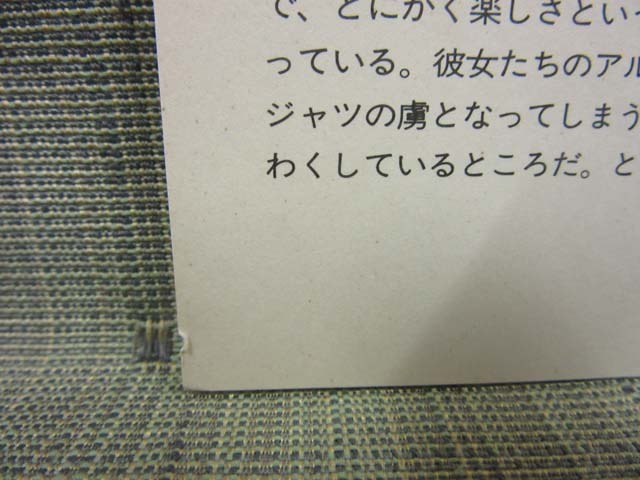 で、とにかく楽しさといっ
っている。彼女たちのアル
ジャツの虜となってしまう
わくしているところだ。と